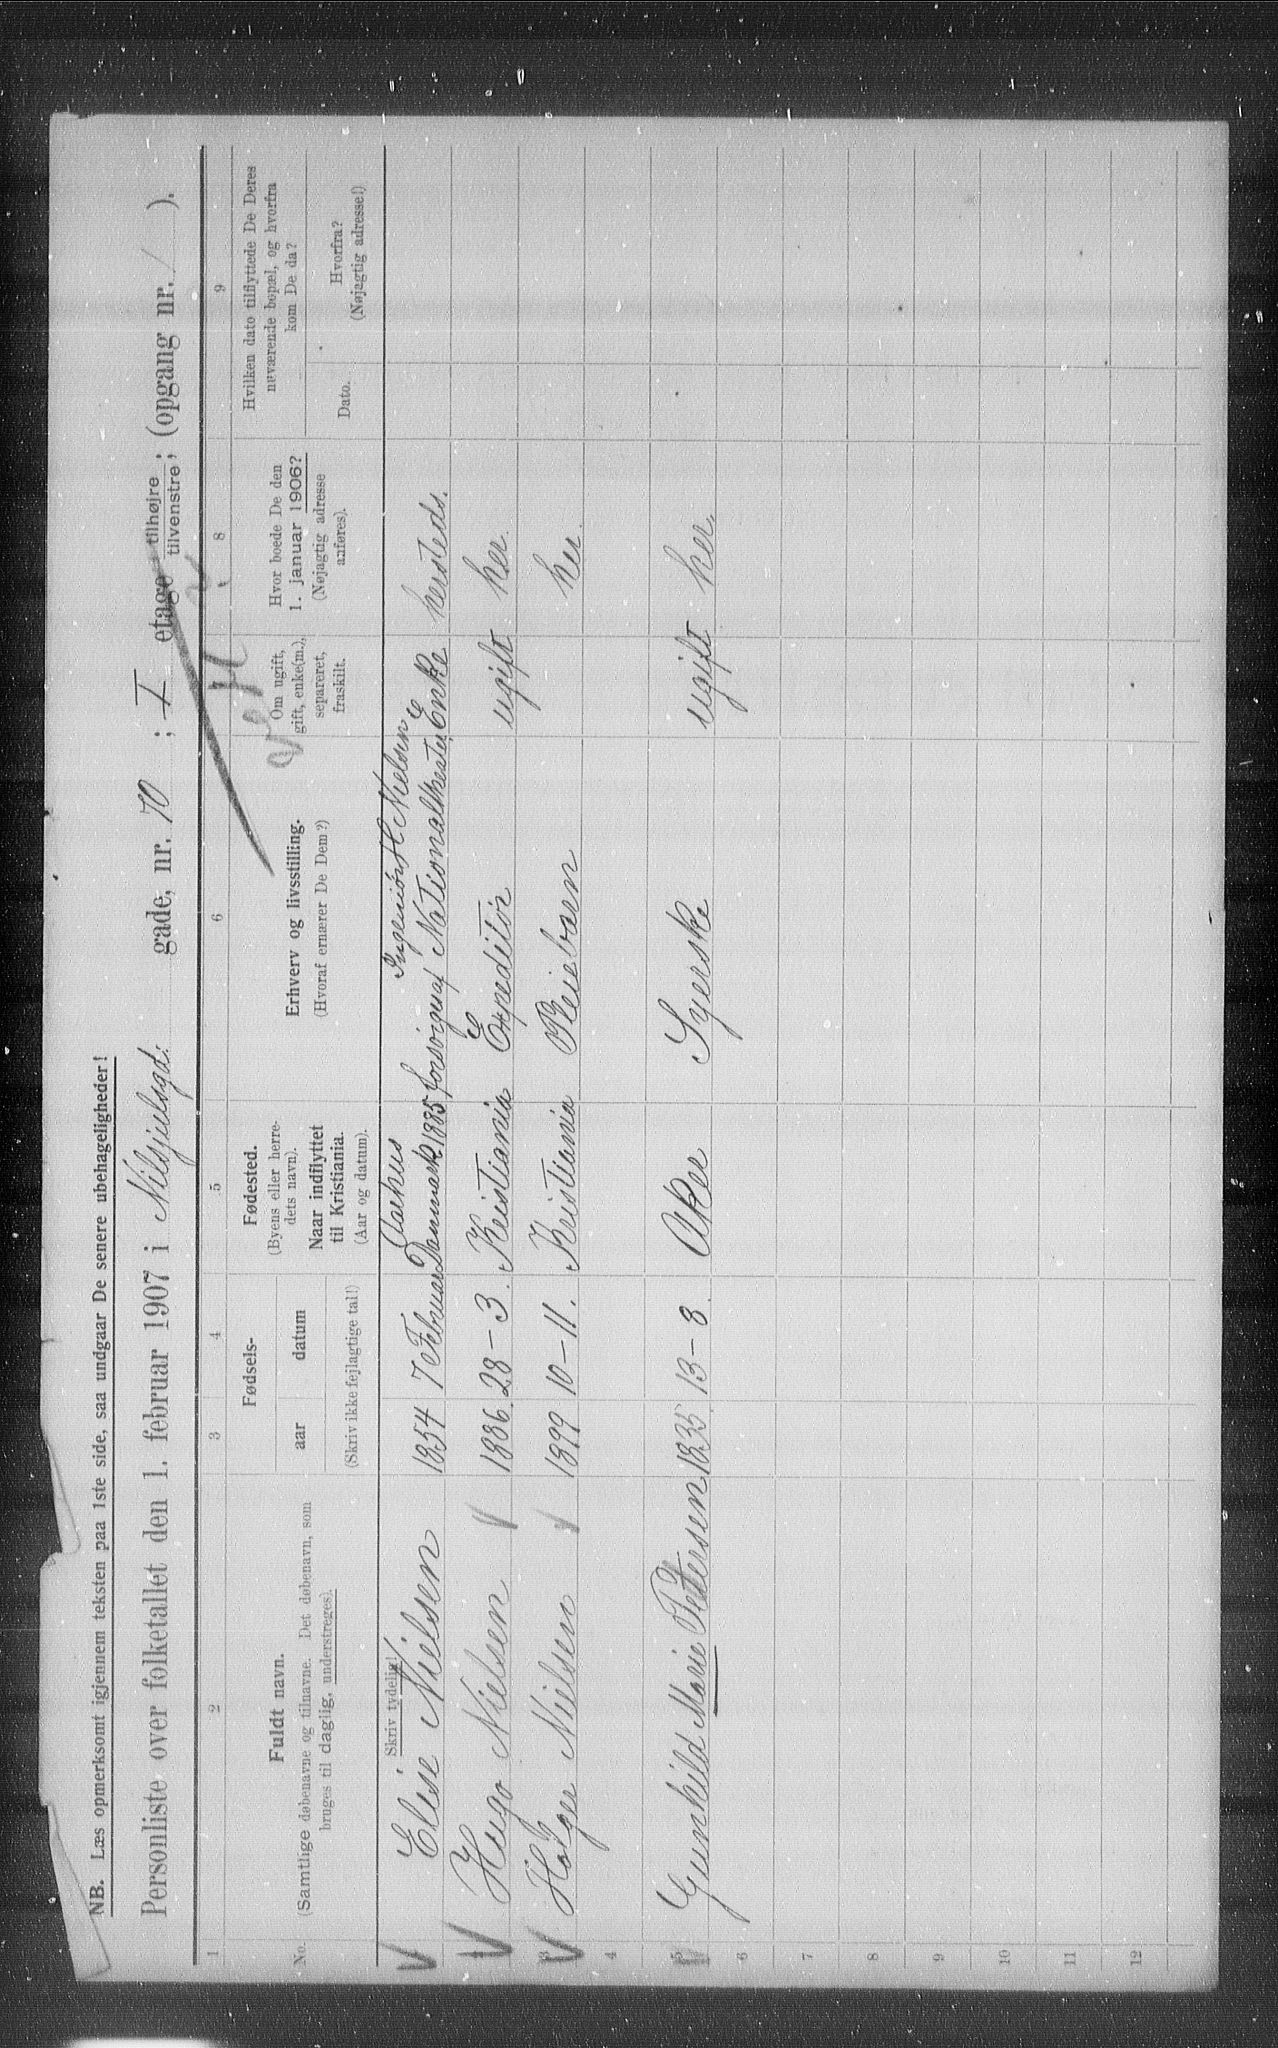 NB. Læs opmerksomt igjennem teksten paa 1ste side, saa undgaar De senere ubehageligheder!
Personliste over folketallet den 1. februar 1907 i Nilsjuelsgd: gade, nr. 70 ; I etage tilhøjre tilvenstre; (opgang nr. / ).
1 2 3 4 5 6 8 9
No.
Fuldt navn.
(Samtlige døbenavne og tilnavne. Det døbenavn, som
bruges til daglig, understreges).
Fødsels-
aar datum
(Skriv ikke fejlagtige tal!)
Fødested.
(Byens eller herre-
dets navn).
Naar indflyttet
til Kristiania.
(Aar og datum).
Erhverv og livsstilling.
(Hvoraf ernærer De Dem?)
Om ugift,
gift, enke(m.),
separeret,
fraskilt.
Hvor boede De den
1. januar 1906?
(Nøjagtig adresse
anføres).
Hvilken dato tilflyttede De Deres
nuværende bopæl, og hvorfra
kom De da?
Dato.
Hvorfra?
(Nøjagtig adresse!)
Skriv tydelig!
Aarhus Ingeniør H Nielsen
Elise Nielsen 1854 7 Februar Danmark 1885 forsørges af Nationaltheatret Enke hersteds.
Hugo Nielsen 1886 28-3. Kristiania Expeditør ugift her.
3 Holger Nielsen 1899 10-11. Kristiania Pleiebarn her.
4
5 Gunhild Marie Petersen 1835 13-8. Aker Syerske ugift her.
6
7
8
9
10
11
12